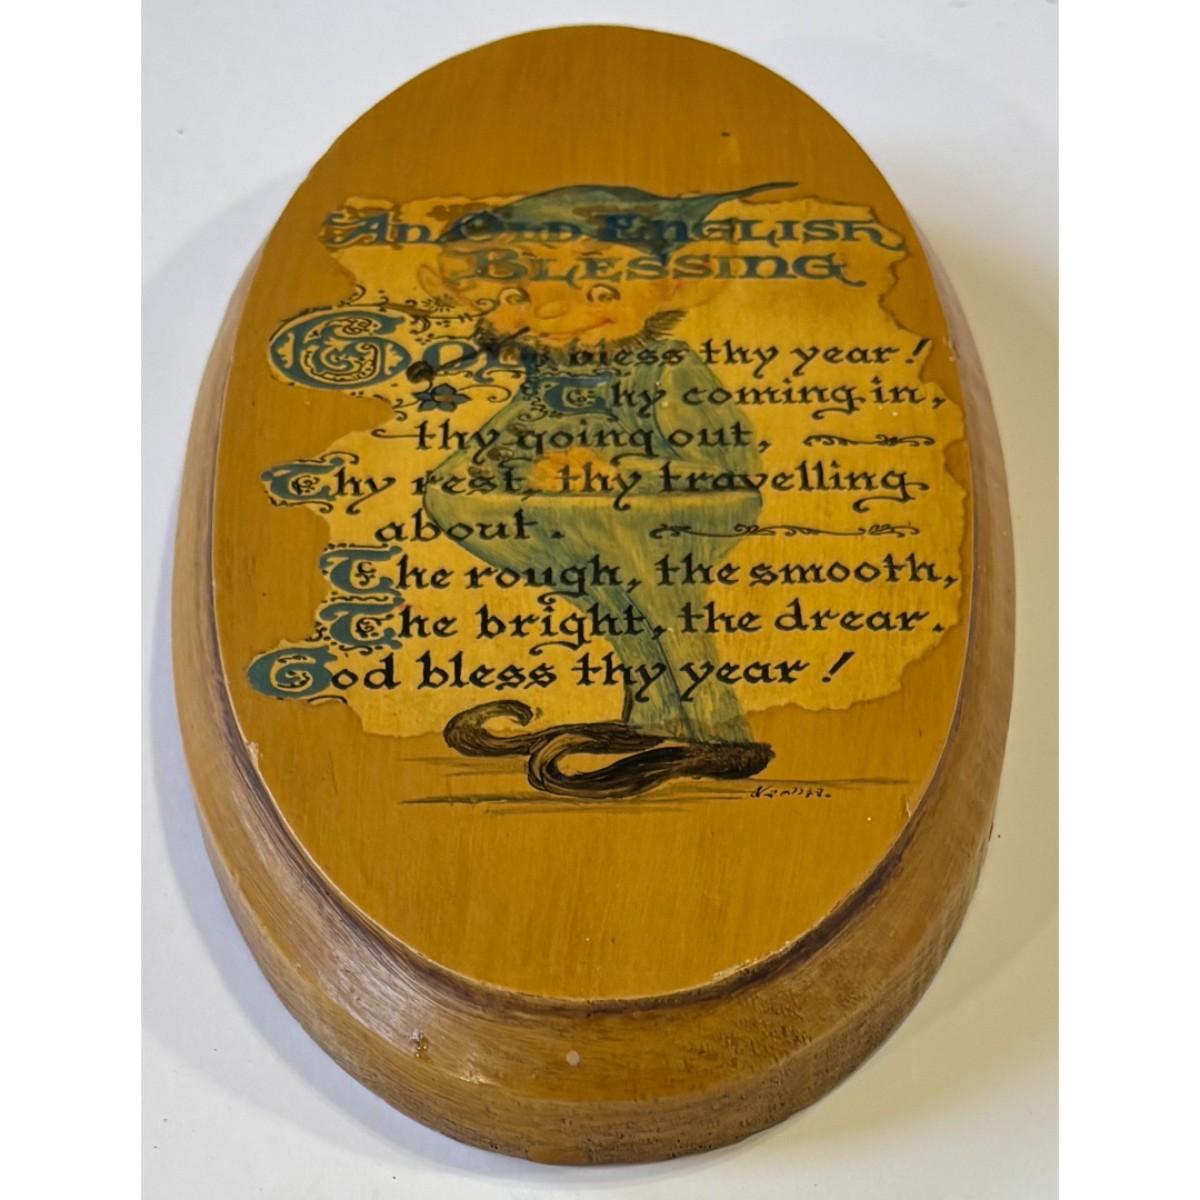 An Old English
Blessing
God bless thy year!
Thy coming in,
thy going out,
Thy rest, thy travelling
about.
The rough, the smooth,
The bright, the drear.
God bless thy year!